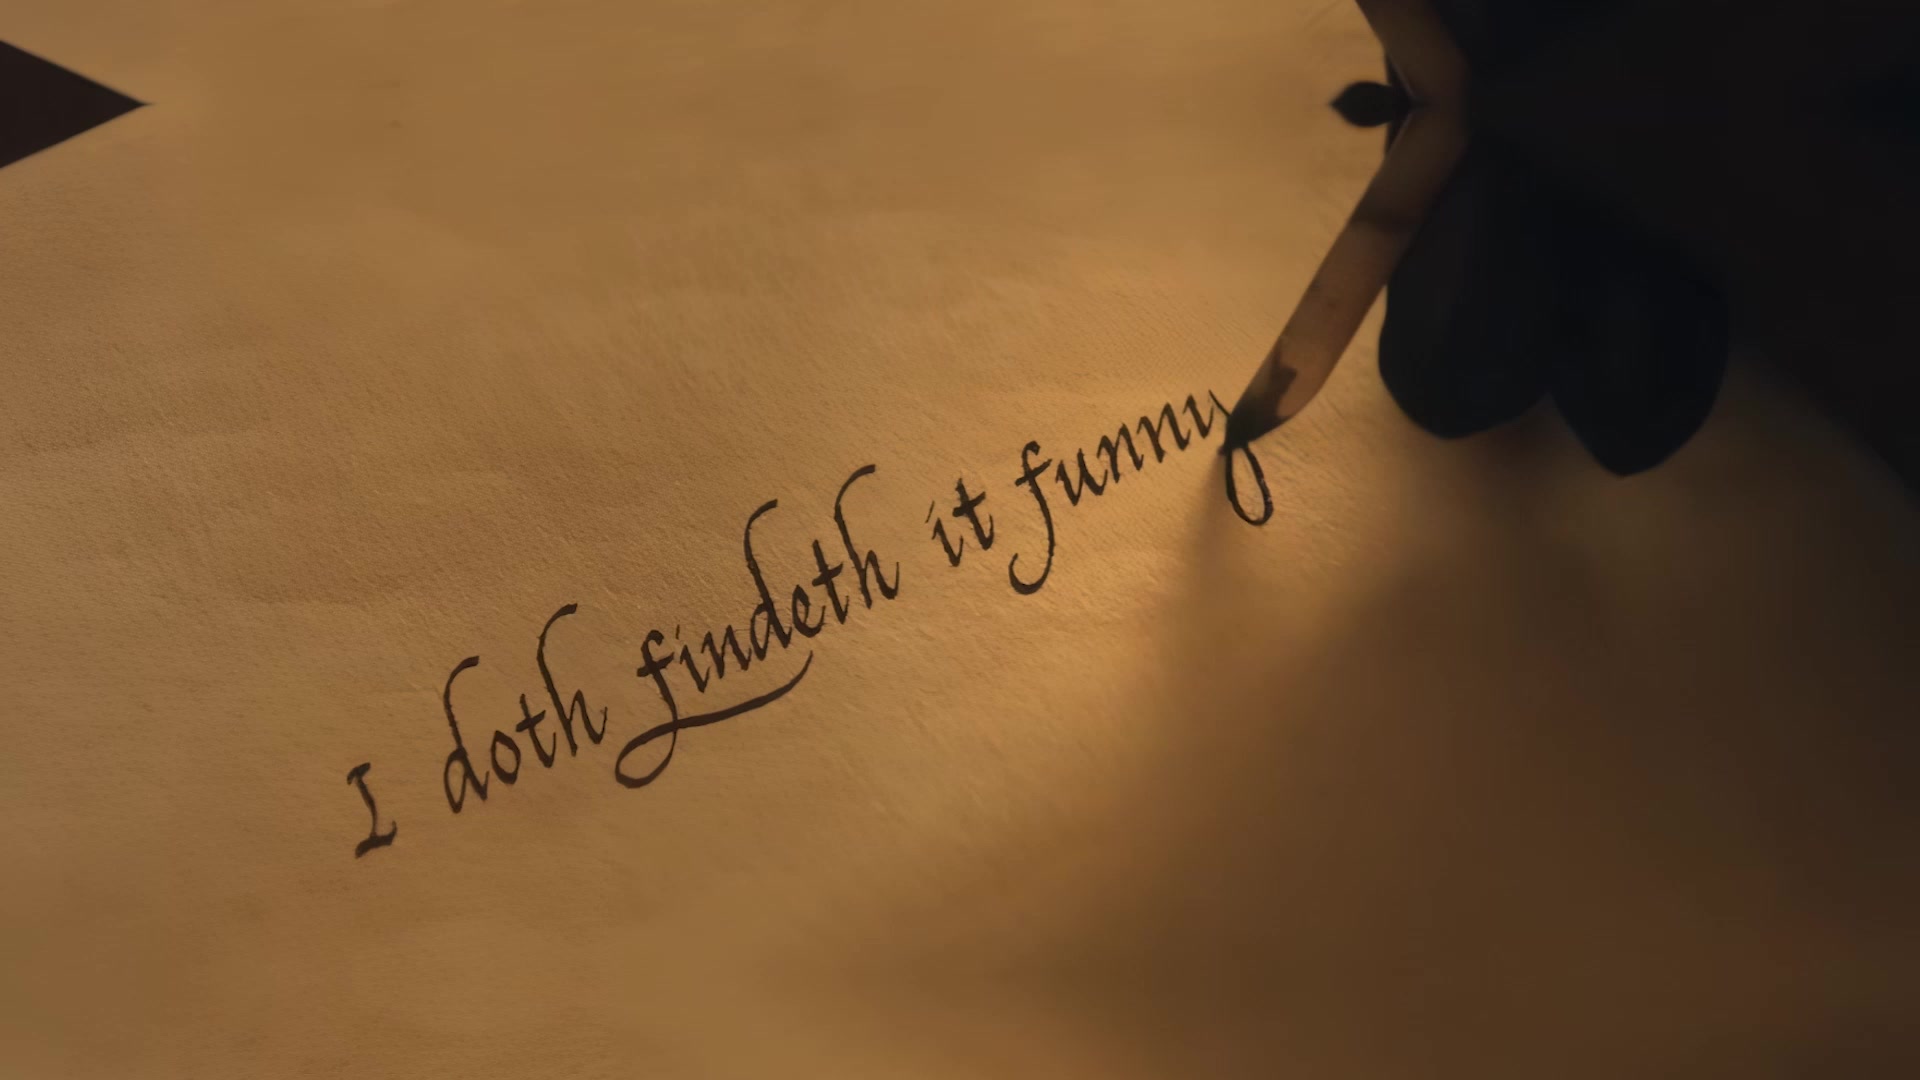 I doth findeth it funny